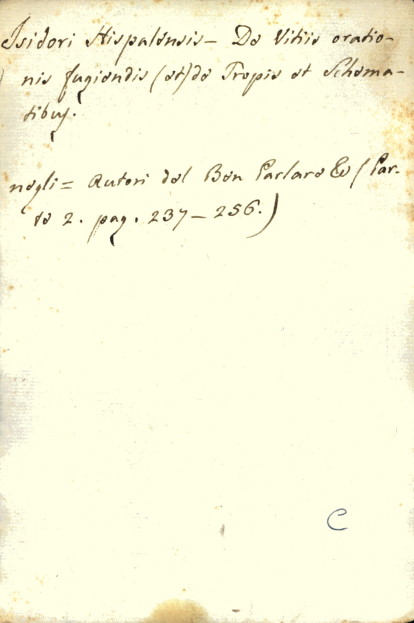 Isidori Hispalensis - De Vitiis oratio-
nis fugiendis (et) de Tropis et Schema-
tibus.
negli = Autori del Ben Parlare &c (Par-
te 2. pag. 237 - 256.)
C